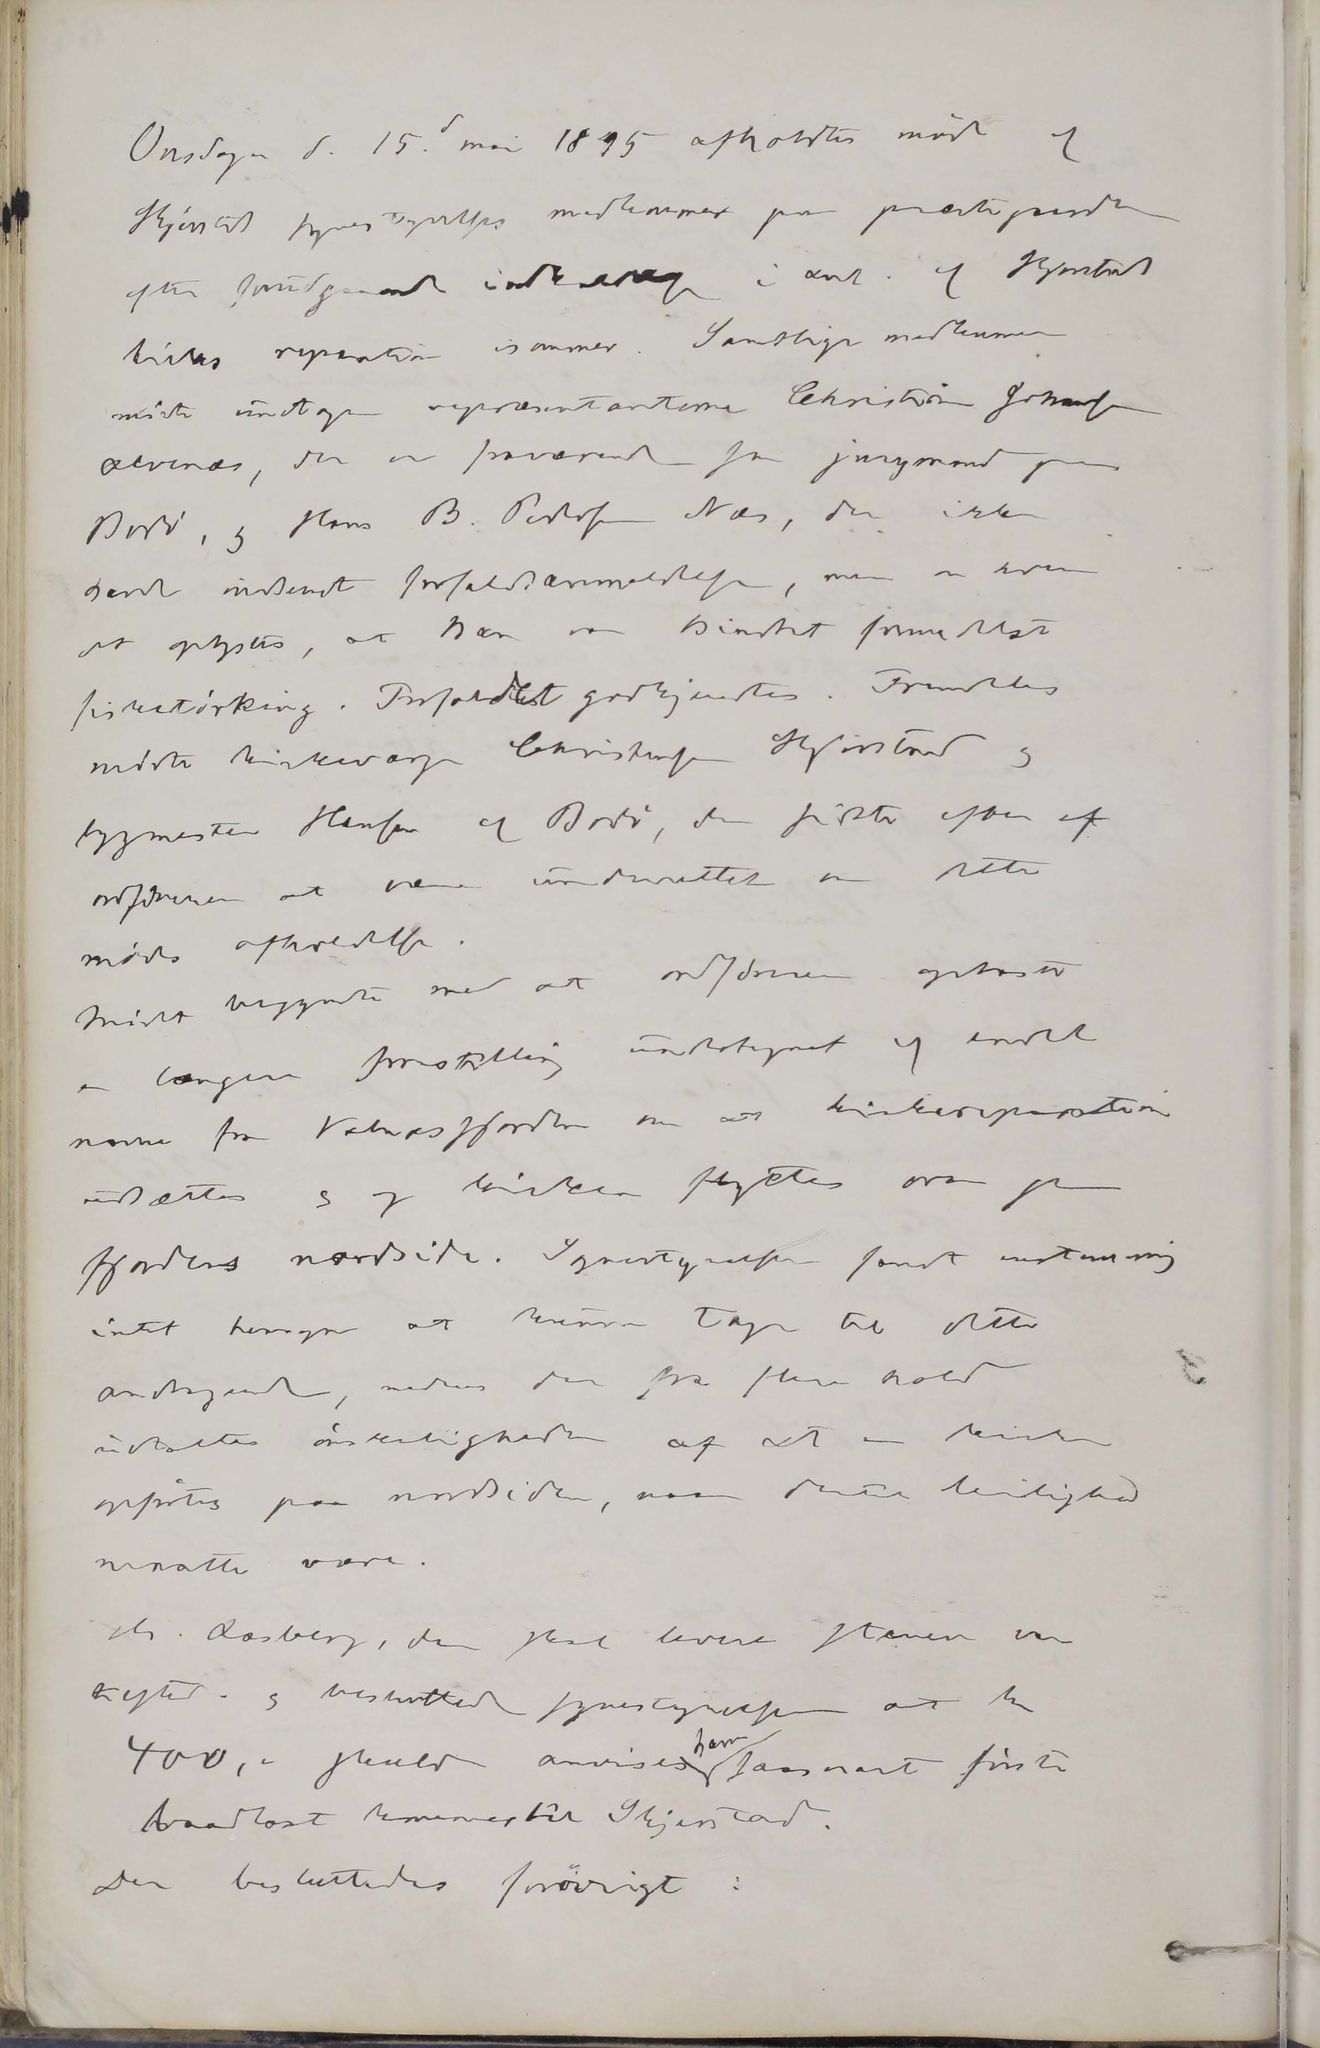 Onsdagen d. 15.d mai 1895 afholdtes möde af
Skjerstad sognestyrelses medlemmer paa præstegaarden
efter forudgaaende indkaldelse i anl. af Skjerstad
kirkes reparation isommer. Samtlige medlemmer
mödte undtagen repræsentanterne Christian Johansen
 der er fraværende som jurymand paa
Bodö, og Hans B. Pedersen Næs, der ikke
havde indsendt forfaldsanmeldelse, men om hvem
det oplystes, at han var hindret formedelst
fisketörking. Forfaldet godkjendtes. Fremdeles
mödte kirkeværge Christensen Skjerstad og
bygmester Hansen af Bodö, den sidste efter af
ordföreren at være underrettet om dette
mödes afholdelse.
Mödet begyndte med at ordföreren oplæste
en længere forestilling undertegnet af endel
navne fra Valnesfjorden om at kirkereparation
udsættes og af kirken flyttes over paa
fjordens nordside. Sognestyrelsen fandt enstemmig
intet hensyn at kunne tage til dette
andragende, medens der fra flere hold
udtaltes önskeligheden af at en kirke
opförtes paa nordsiden, naar dertil leilighed
maatte være.
Hr. Aasberg, der skal levere stenen var
tilsted. og besluttede sognestyrelsen at kr
400,- skulde anvises ham saasnart förste
baadlast kommer til Skjerstad.
Der besluttedes forövrigt :